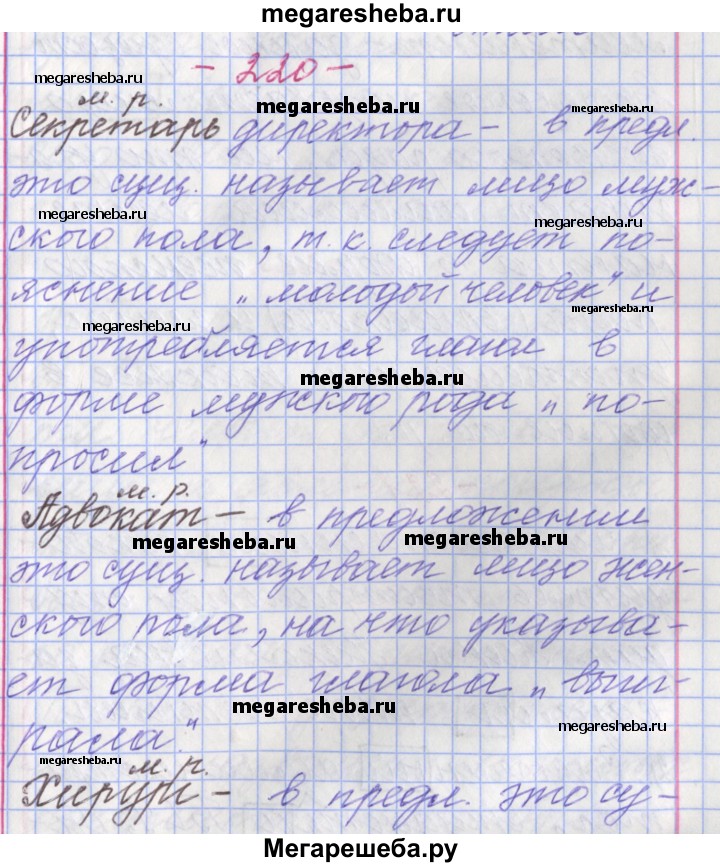 megaresheba.ru
- 220 -
megaresheba.ru
м. р.
megaresheba.ru
Секретарь директора - в предл.
это сущ. называет лицо муж-
megaresheba.ru
megaresheba.ru
ского пола, т. к. следует по-
яснение „молодой человек" и
megaresheba.ru
megaresheba.ru
употребляется глагол в
megaresheba.ru
форме мужского рода „по-
просил"
м. р.
Адвокат - в предложении
megaresheba.ru
megaresheba.ru
это сущ. называет лицо жен-
ского пола, на что указыва-
ет форма глагола „выиг-
megaresheba.ru
megaresheba.ru
рала."
м. р.
Хирург - в предл. это су-
Мегарешеба.ру